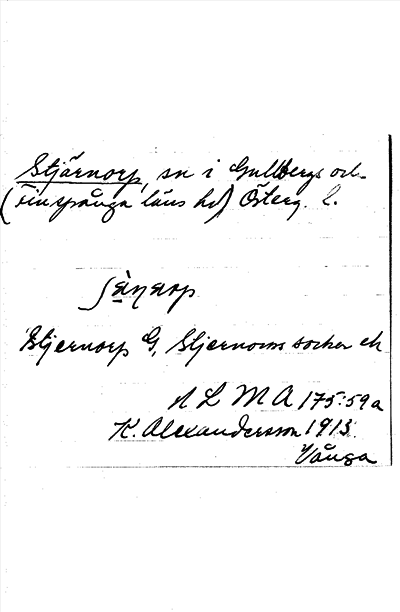 Stjärnorp, sn i Gullbergs och
(Finspånga läns hd) Österg. l.
Stjernorp G, Stjernorps socken
N L M A 175:59a
K. Alexandersson 1913.
Vånga